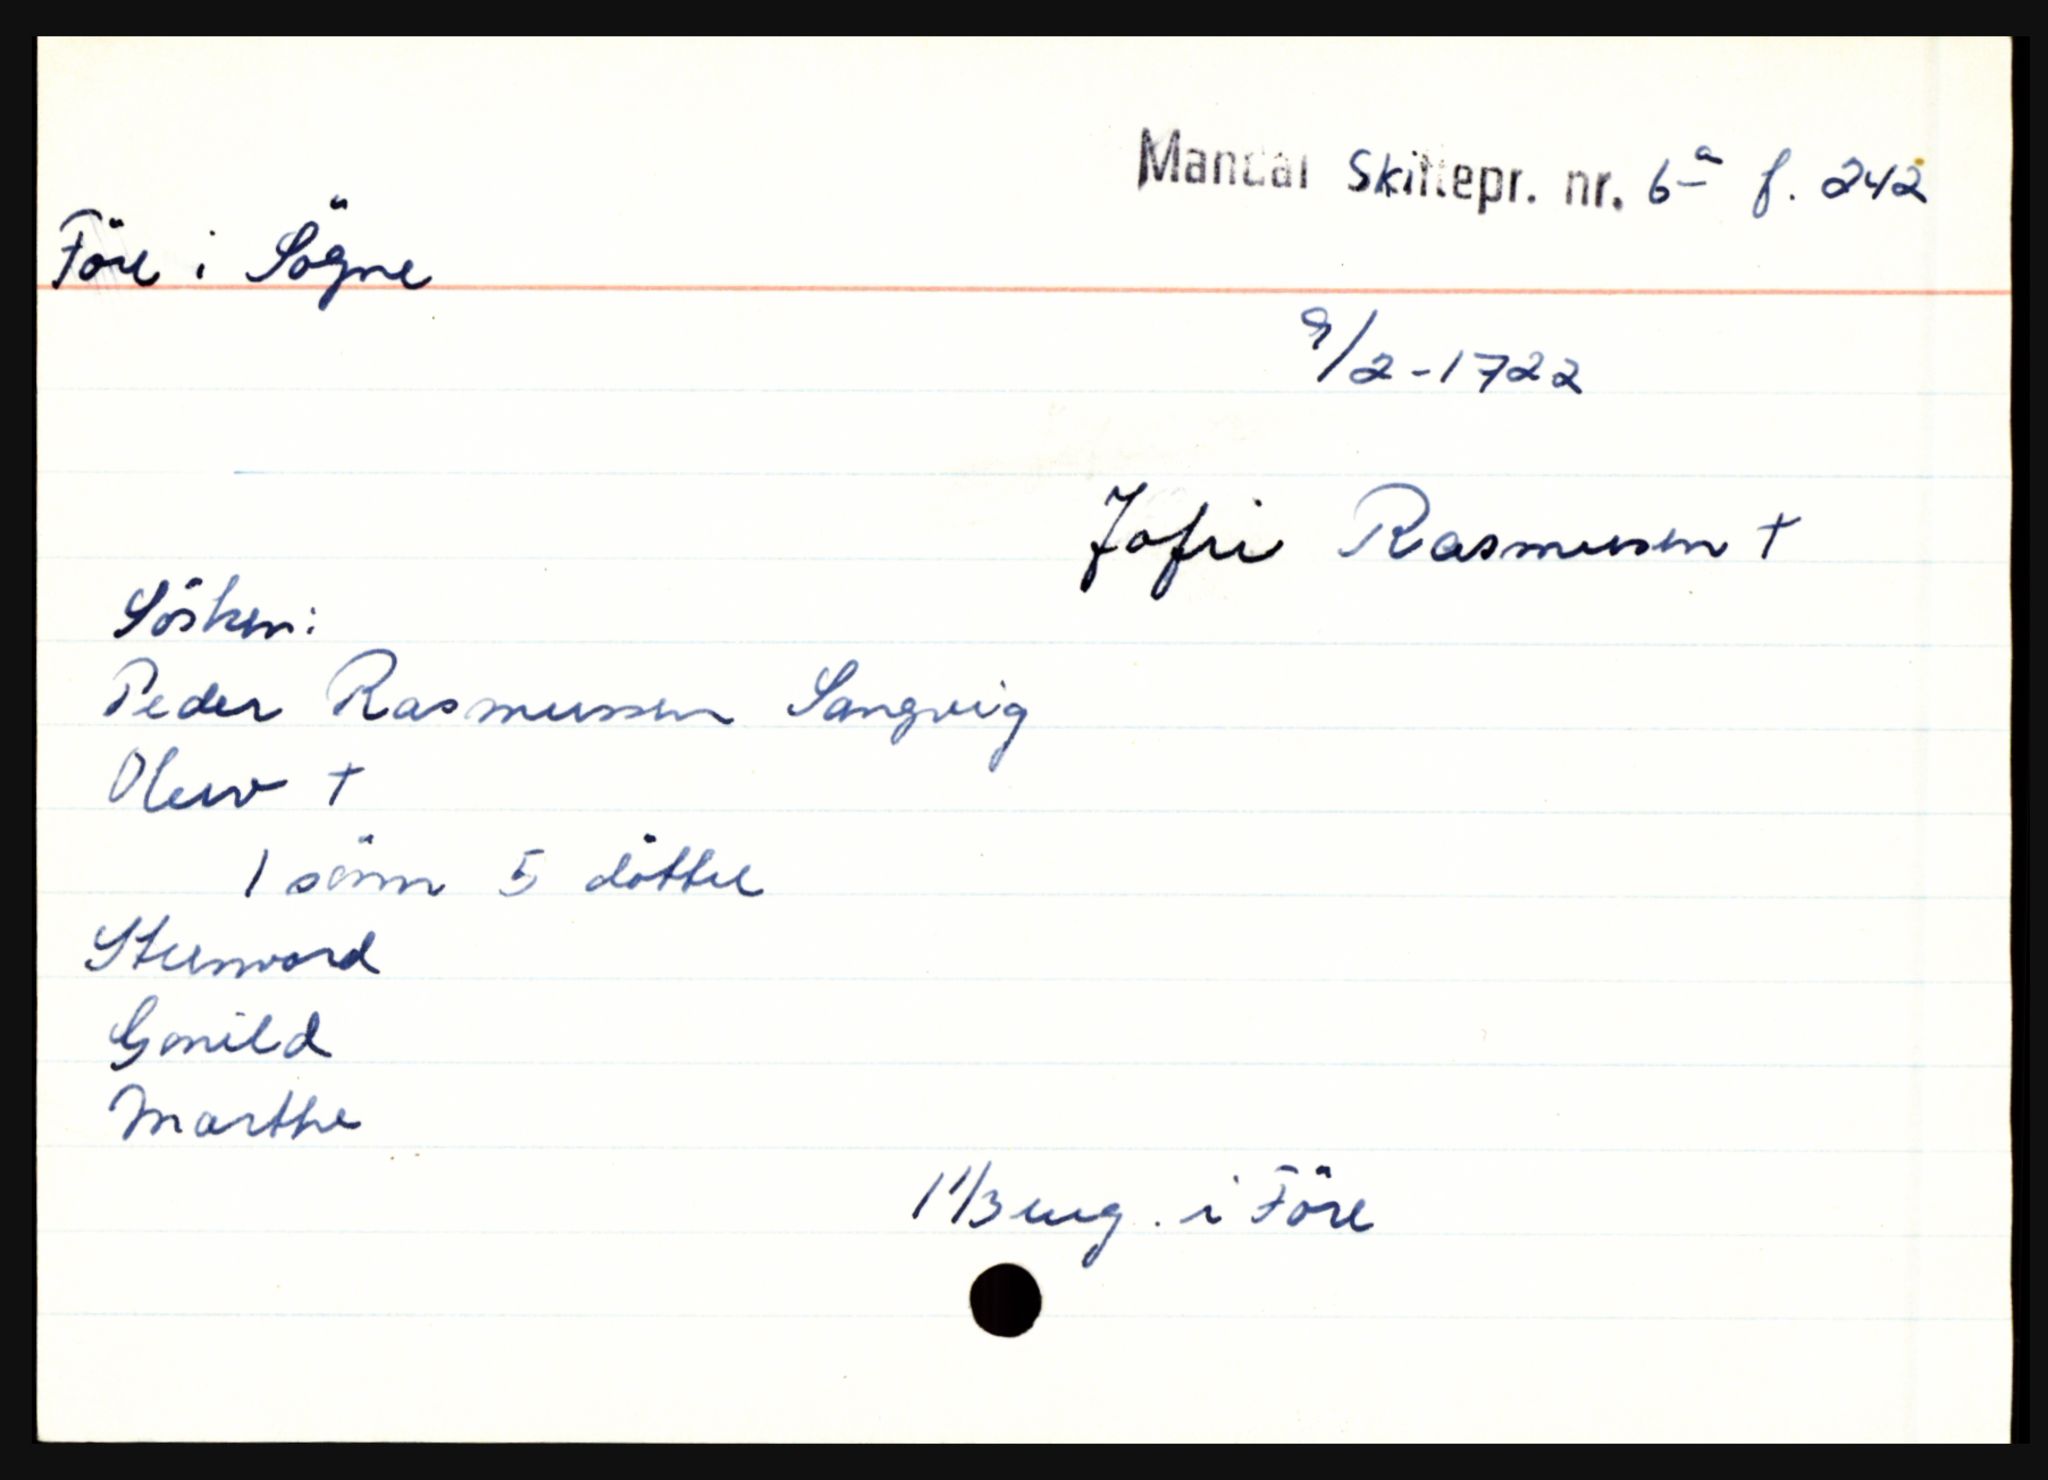 Mandal Skiftepr. nr. 6a f. 242
Före i Sögne
9/2-1722
Jofri Rasmussen +
Sösken:
Peder Rasmussen Sangvig
Oluv +
1 sönn 5 döttre
Stenvord
Gonild
Marthe
1 1/3 eng. i Före